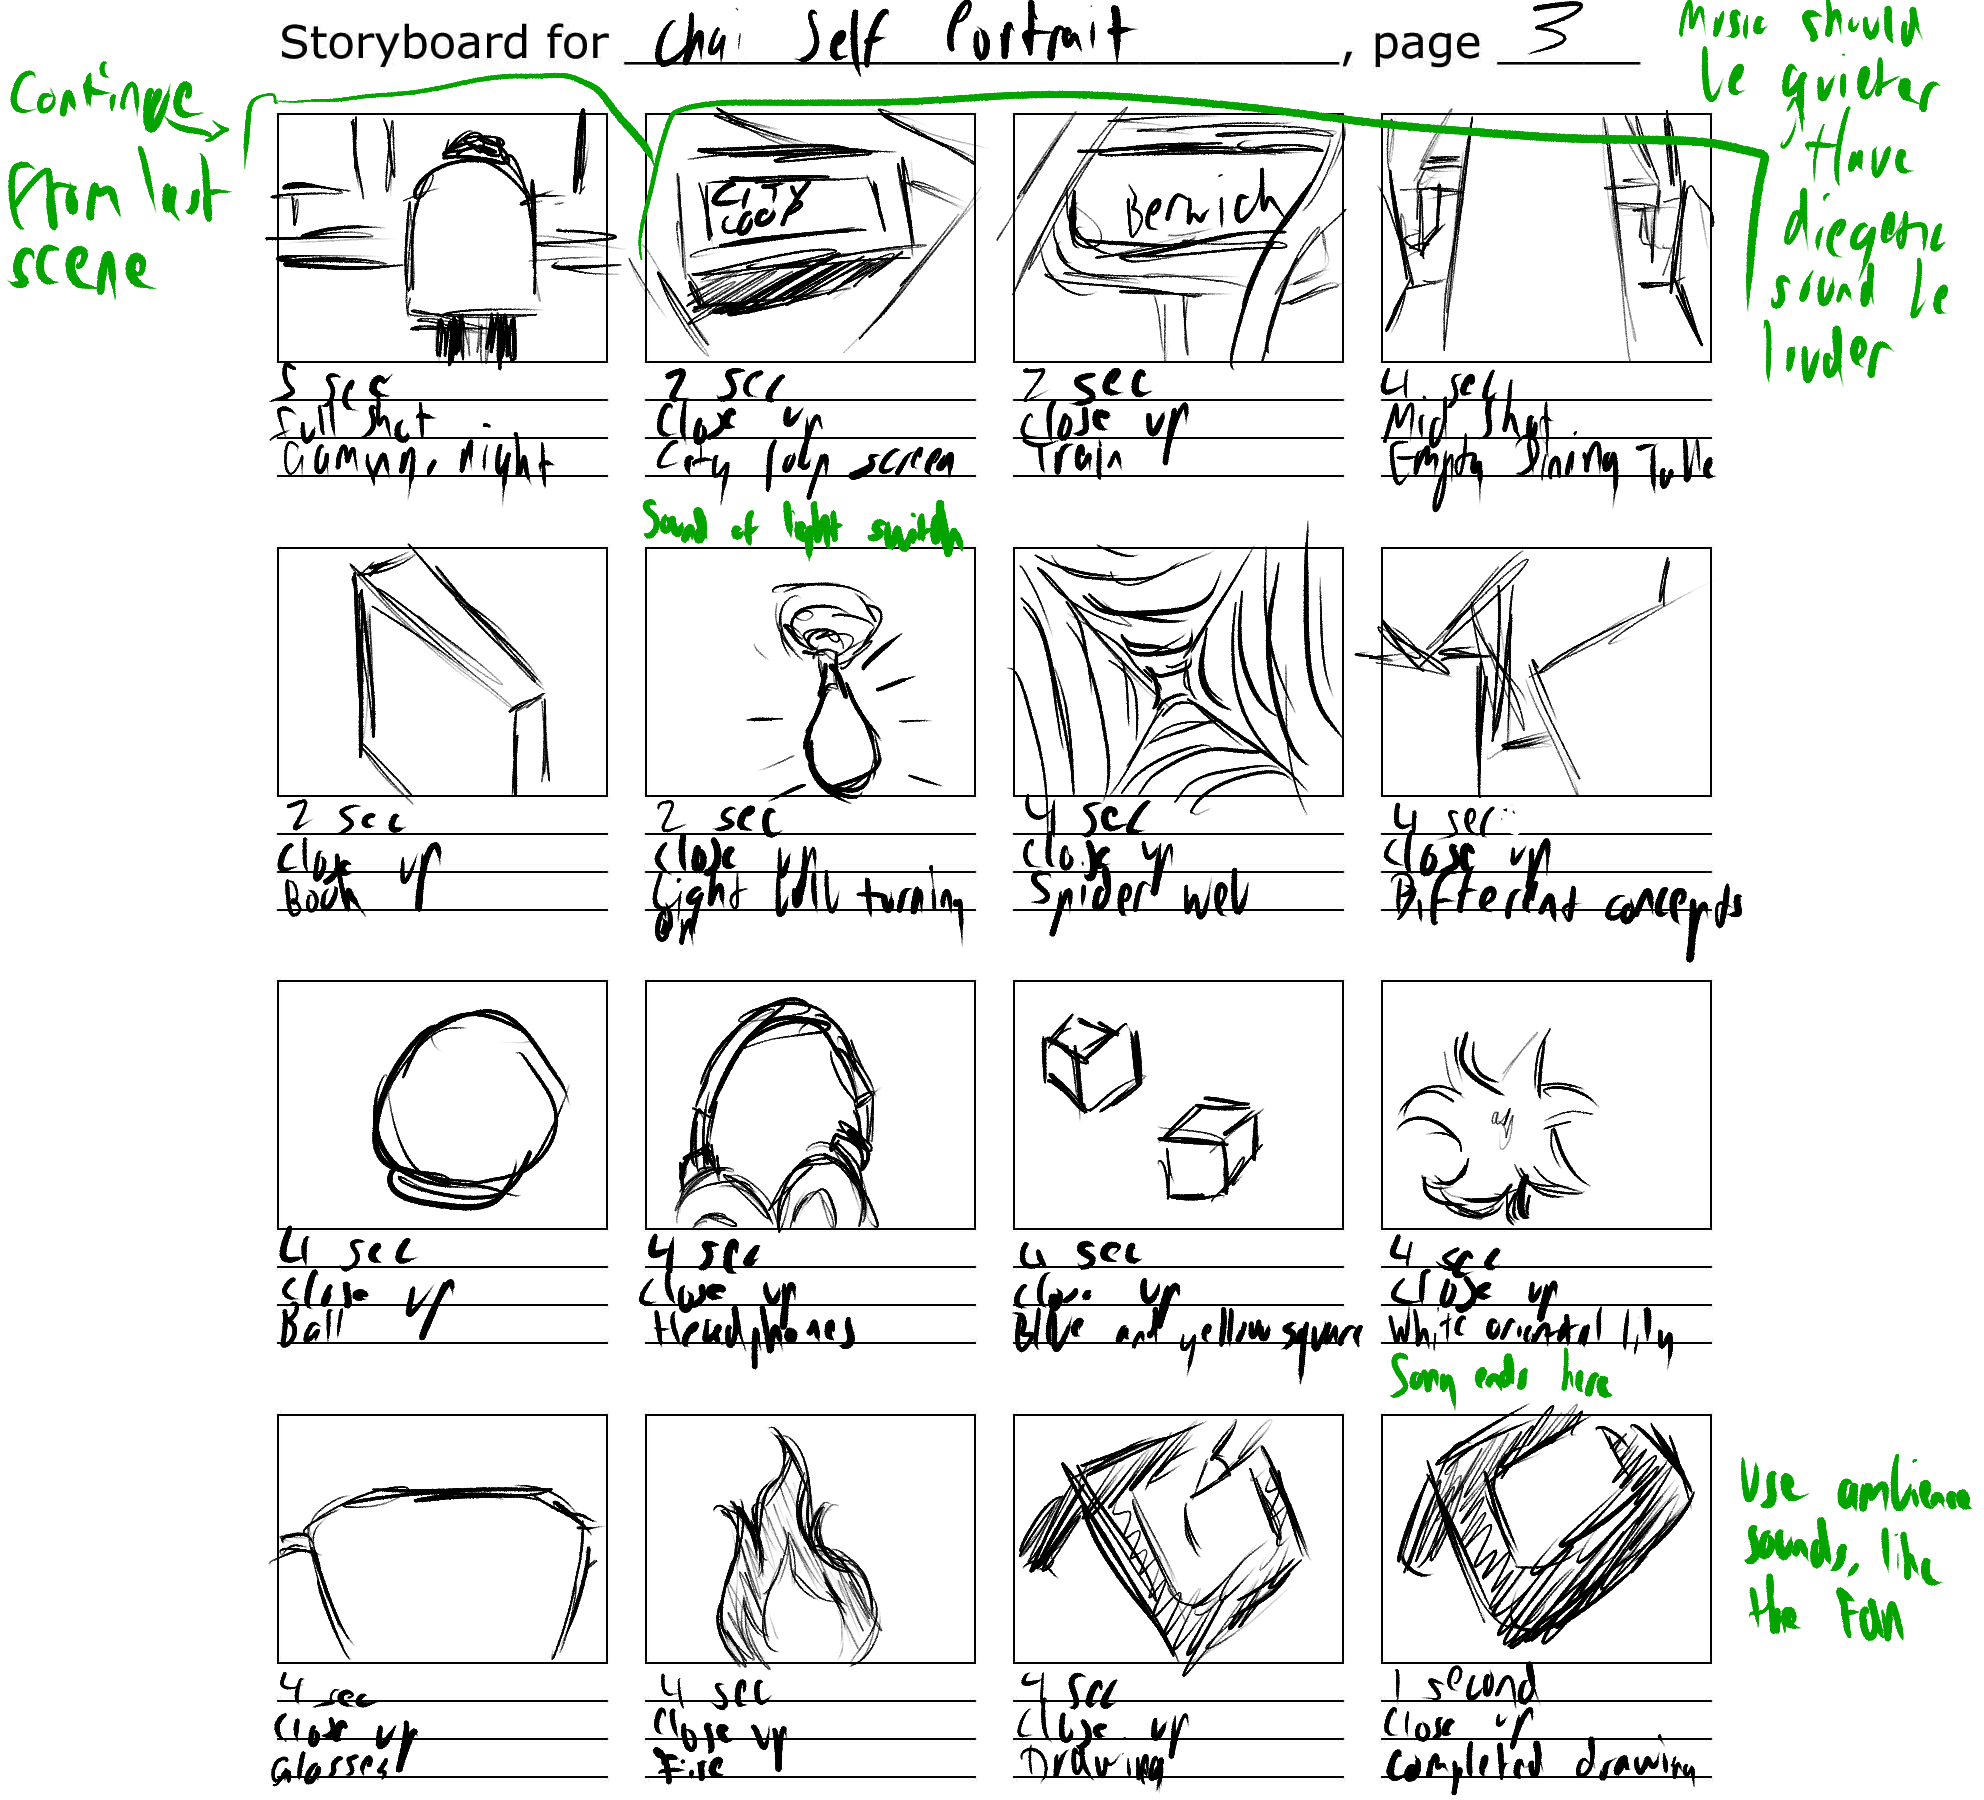 Storyboard for Chai Self Portrait, page 3
Continue
From last
scene
Music should
be quieter
Have
diegetic
sound be
louder
CITY
LOOP
Berwick
5 sec
Full shot
Gaming, night
2 sec
Close up
City loop screen
2 sec
Close up
Train
4 sec
Mid shot
Empty Dining Table
Sound of light switch
2 sec
Close up
Book
2 sec
Close up
Light bulb turning
on
4 sec
Close up
Spider web
4 sec
Close up
Different concepts
4 sec
Close up
Ball
4 sec
Close up
Headphones
4 sec
Close up
Blue and yellow square
4 sec
Close up
White oriental lily
Song ends here
Use ambience
sounds, like
the Fan
4 sec
Close up
Glasses
4 sec
Close up
Fire
4 sec
Close up
Drawing
1 second
Close up
Completed drawing